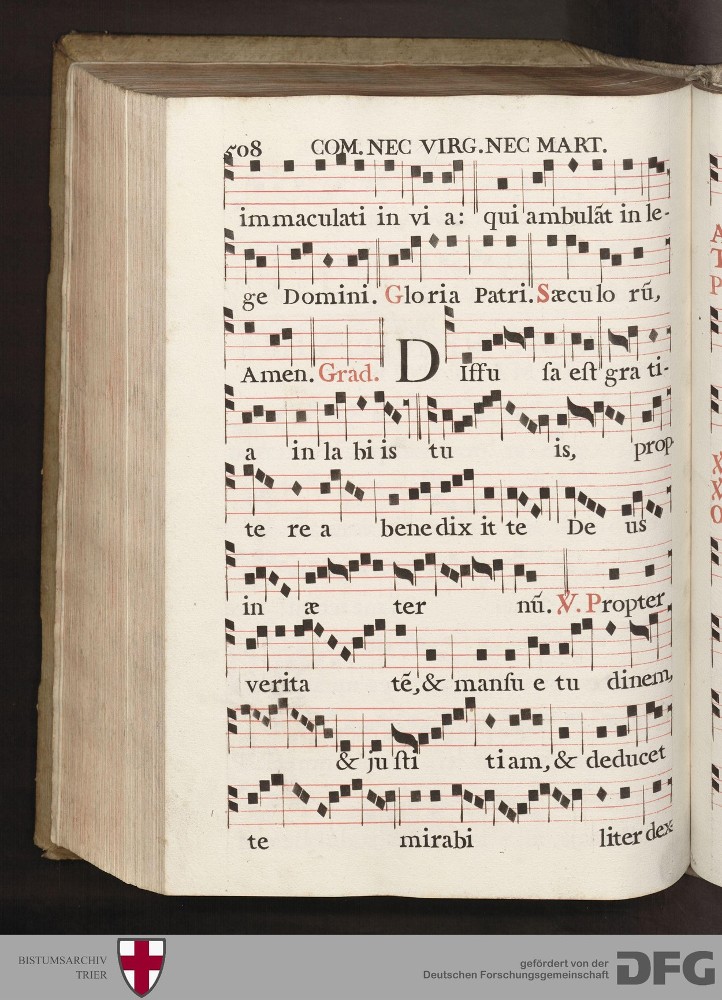 508 COM. NEC VIRG. NEC MART.
immaculati in vi a: qui ambulãt in le-
ge Domini. Gloria Patri. Sæculo rũ,
Amen. Grad. D Iffu ſa eſt gra ti-
a in la bi is tu is, prop
te re a bene dix it te De us
in æ ter nũ. ℣. Propter
verita tẽ, & manſu e tu dinem,
& ju ſti tiam, & deducet
te mirabi liter dex-
A
T
P
O
BISTUMSARCHIV
TRIER
gefördert von der
Deutschen Forschungsgemeinschaft
DFG